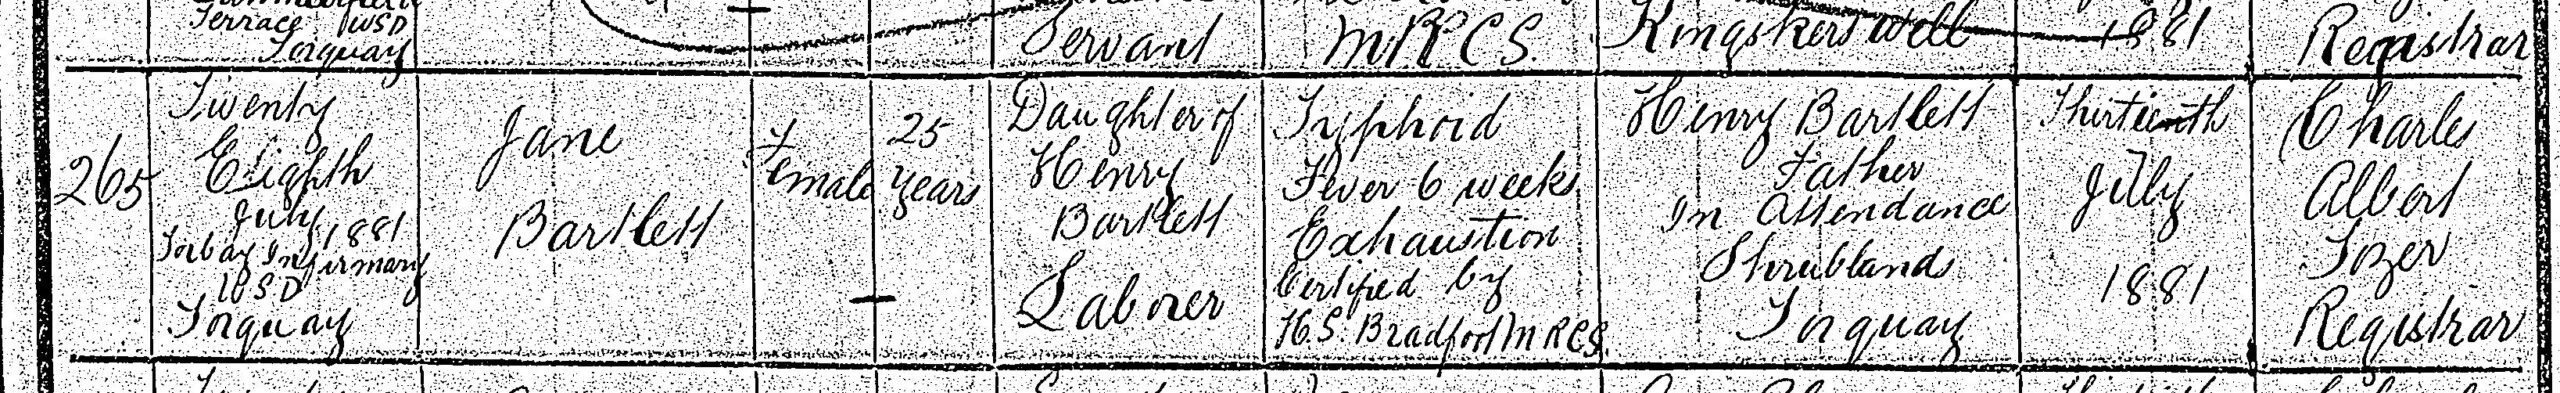 Terrace WSD
Torquay
Servant
MRCS.
Kingskerswell
1881
Registrar
265
Twenty
Eighth
July 1881
Torbay Infirmary
WSD
Torquay
Jane
Bartlett
Female
25
years
Daughter of
Henry
Bartlett
Laborer
Typhoid
Fever 6 weeks
Exhaustion
Certified by
H.S. Bradfort MRCS
Henry Bartlett
Father
In Attendance
Shrublands
Torquay
Thirtieth
July
1881
Charles
Albert
Tozer
Registrar